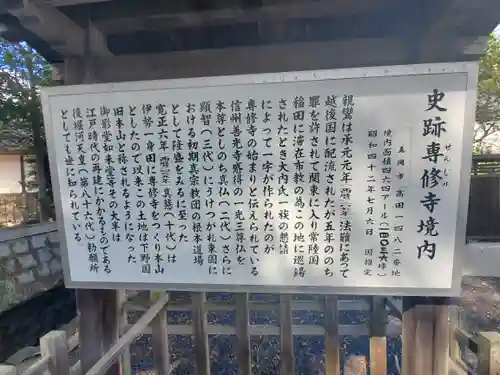 史跡専修寺境内
せんしゅじ
真岡市高田一四八二番地
境内面積四六四アール(一四〇三六坪)
昭和四十二年七月六日 国指定
親鸞は承元元年(一二〇七)法難にあって
越後国に配流されたが五年ののち
罪を許されて関東に入り常陸国
稲田に滞在布教のためこの地に巡錫
されたとき大内氏一族の懇請
によって一宇が作られたのが
専修寺の始まりと伝えられている
信州善光寺感得の一光三尊仏を
本尊としのち真仏(二代)さらに
顕智(三代)にうけつがれ東国に
おける初期真宗教団の根本道場
として隆盛をみるに至った
寛正六年(一四六五)真慧(十代)は
伊勢一身田に専修寺をつくり本山
としたので以来この土地は下野国
旧本山と称されるようになった
御影堂如来堂等の大半は
江戸時代の再建にかかるもので
後堀河天皇(第八十六代)勅願所
としても世に知られている